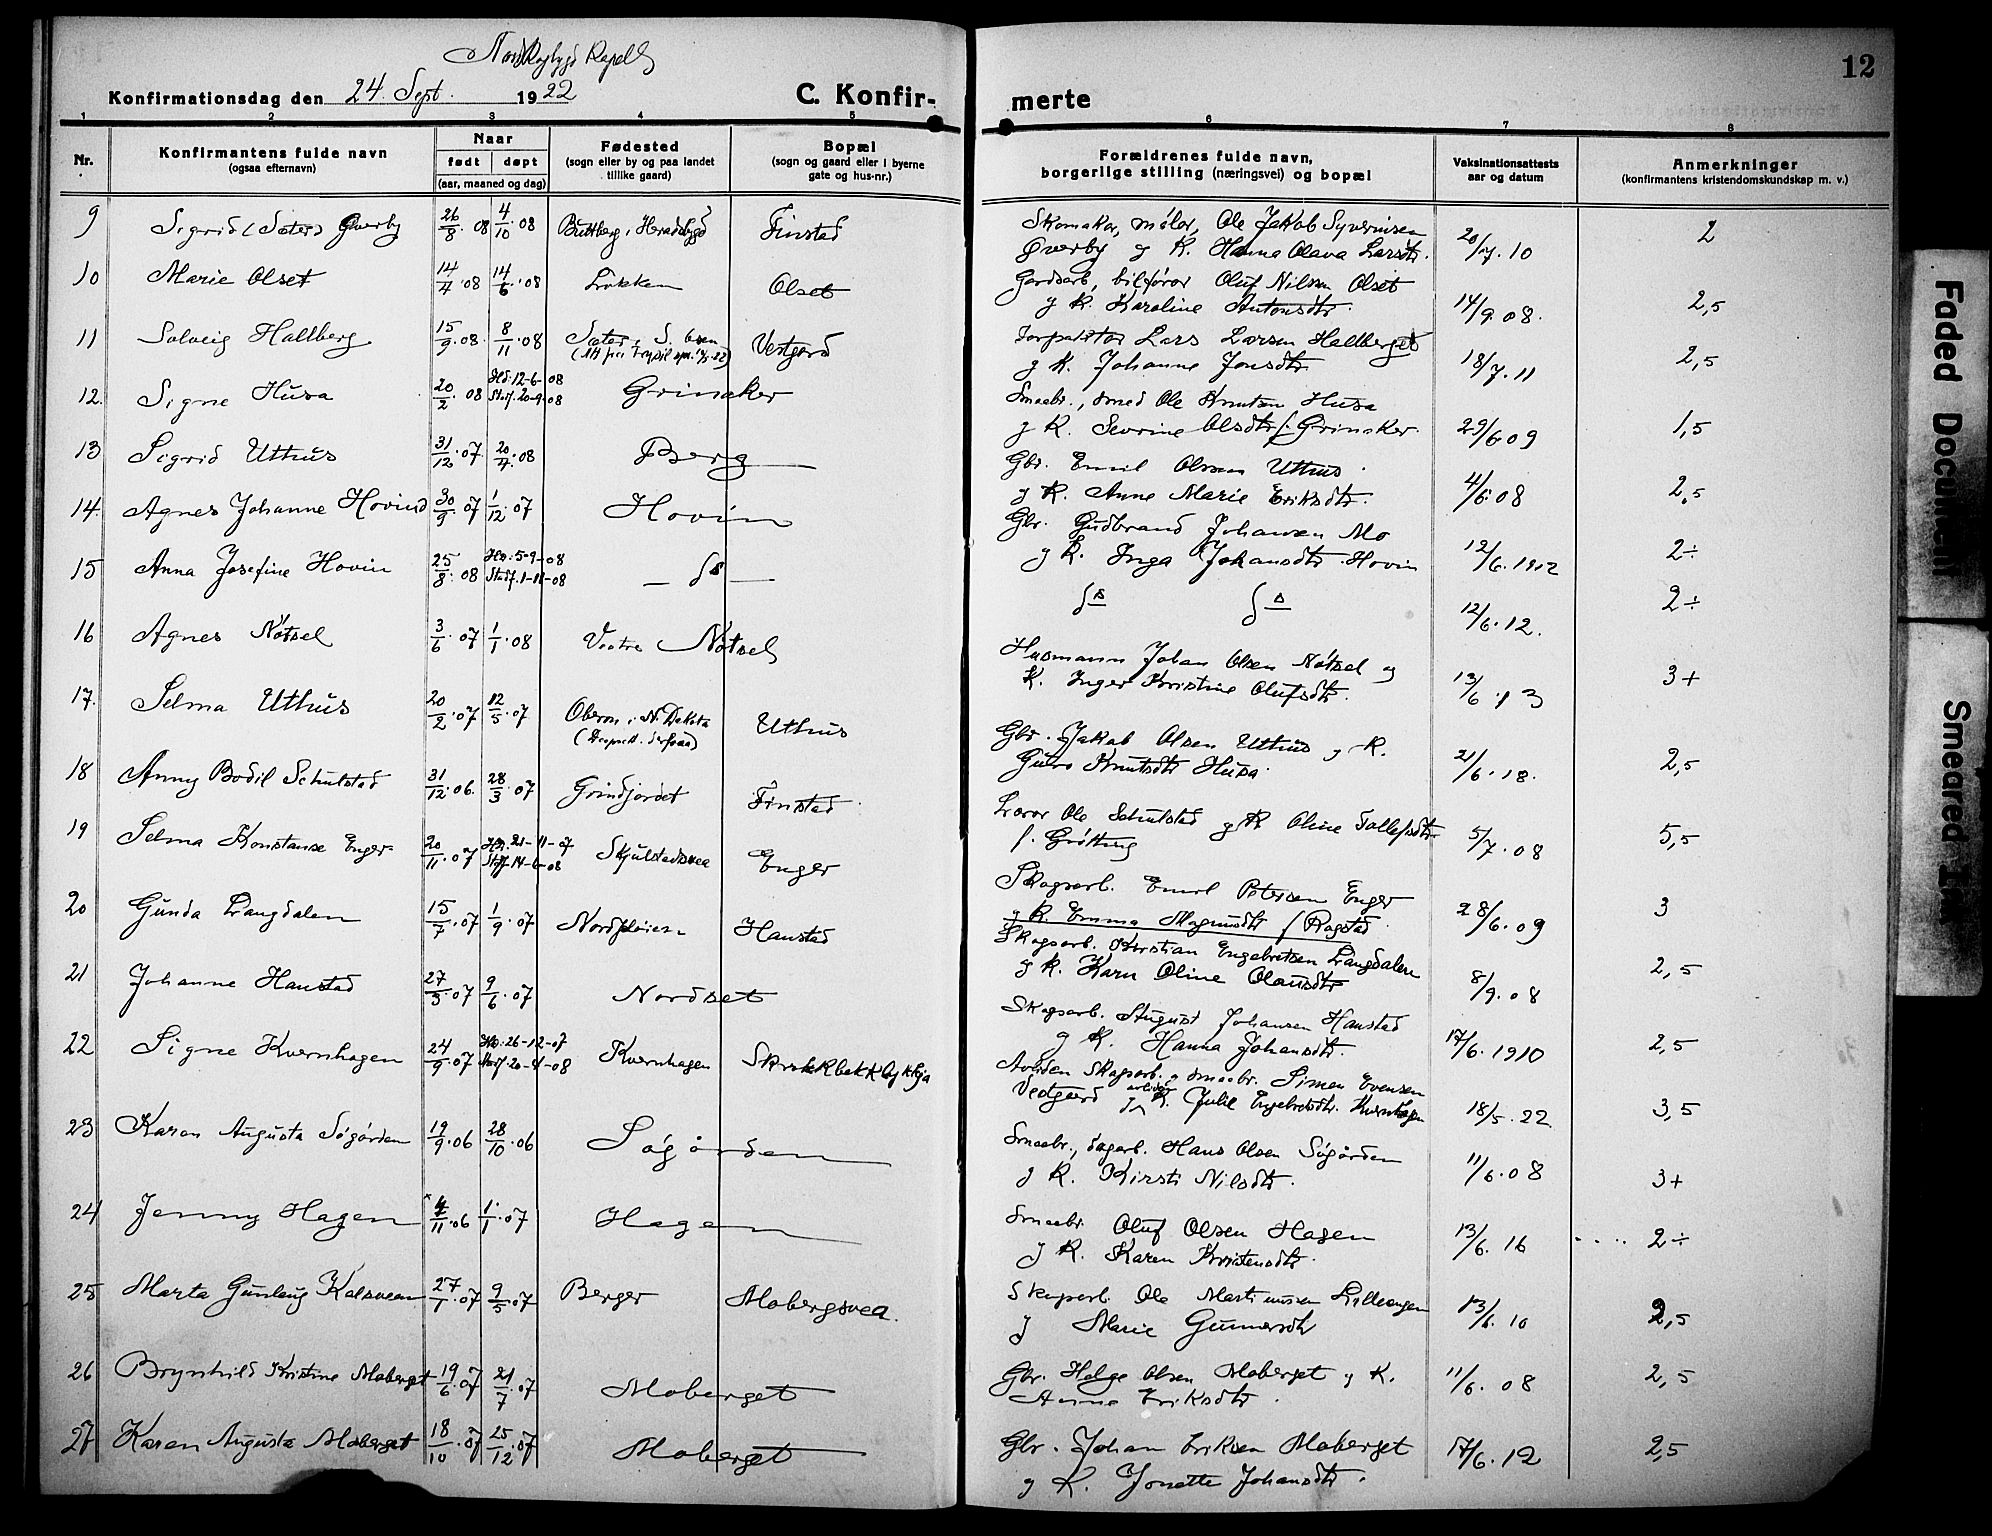 Nordskogbygd Kapell
12
Konfirmationsdag den 24. Sept. 1922
C. Konfir-
merte
1 2 3 4 5 6 7 8
Nr.
Konfirmantens fulde navn
(ogsaa efternavn)
Naar
født døpt
(aar, maaned og dag)
Fødested
(sogn eller by og paa landet
tillike gaard)
Bopæl
(sogn og gaard eller i byerne
gate og hus-nr.)
Forældrenes fulde navn,
borgerlige stilling (næringsvei) og bopæl
Vaksinationsattests
aar og datum
Anmerkninger
(konfirmantens kristendomskundskap m. v.)
9 Sigrid (Sæter) Øverby 26/8 08 4/10 08 Buttberg i Heradsbygd Finstad
Skomaker, møler, Ole Jakob Syverinsen
Øverby og K. Hanna Olava Larsdtr. 20/7. 10 2
10 Marie Olset 14/4 08 14/6 08 Løkken Olset
Gardsarb, bilfører Oluf Nilsen Olset
og K. Karoline Antonsdtr. 14/9. 08. 2,5
11 Solveig Hallberg 15/9 08. 8/11 08 Sæter i S. Osen Vestgard
Lars Larsen Hallberget
og K. Johanne Jonsdtr 18/7. 11 2,5
12. Signe Husa 20/2 08 Hd. 12-6-08
Stadf. 20-9-08 Grinaker
Smaabr., smed Ole Knutsen Husa
og K. Sevrine Olsdtr f. Grinaker. 29/6 09 1,5
13 Sigrid Uthus 31/12 07 20/4 08 Berg
Gbr. Emil Olsen Uthus
og K. Anne Marie Eriksdtr. 4/6 08 2,5
14. Agnes Johanne Hovind 30/9 07 1/12 07 Hovin
Gbr. Gudbrand Johansen Mo
og K. Inga Johansdtr Hovin 12/6. 1912 2÷
15 Anna Josefine Hovin 25/8 08 Hd. 5-9-08
Stadf. 1-11-08 — ds —
ds ds 12/6. 12. 2÷
16 Agnes Nötsel 3/6 07 1/1 08 Vestre Nötsel
Husmann Johan Olsen Nötsel og
K. Inger Kristine Olufsdtr. 13/6. 13 3+
17. Selma Uthus 20/2 07 12/5 07 Oberon i N. Dakota Uthus
Gbr. Jakob Olsen Uthus og K.
Guro Knutsdtr Husa. 21/6. 18. 2,5
18 Anny Bodil Schulstad 31/12 06. 28/3 07 Grindjordet Finstad
Lærer Ole Schulstad og K Oline Tollefsdtr
f. Grötting 5/7. 08 5,5
19 Selma Konstanse Enger 20/11 07 Hd. 21-11-07
Stadf. 14-6-08 Skjulstadsvea Enger
Skogsarb. Emil Petersen Enger
og K. Emma Magnusdtr f Rogstad. 28/6. 09 3
20 Gunda Langdalen 15/7 07 1/9 07 Hanstad
Skogsarb. Kristian Engebretsen Langdalen
og K. Karn Oline Olausdtr 8/9. 08 2,5
21 Johanne Hanstad 27/3 07 9/6 07 Nordset
Skogsarb. August Johansen Hanstad
og K. Hanna Johansdtr. 17/6. 1910 2,5
22 Signe Kvernhagen 24/9 07 Hd. 26-12-07
Stadf. 20-4-08 Kvernhagen
Avliden Skogsarb. og smaabr. Simen Evensen
Vestgard og avliden K. Julie Engebretsdtr. Kvernhagen 18/5. 22 3,5
23 Karen Augusta Søgården 19/9 06 28/10 06 Søgården
Smaabr., dagarb. Hans Olsen Søgården
og K. Kirsti Nilsdtr. 11/6. 08 3+
24 Jenny Hagen 4/11 06 1/1 07 Hagen
Smaabr. Oluf Olsen Hagen
og K. Karen Kristensdtr. 13/6. 16 .... 2÷
25 Marta Gunlaug Kalsveen 27/1 07 9/5 07 Berger Mobergsvea.
Ole Martinussen Lilleengen
og Marie Gunnarsdtr 13/6. 10 2,5
26 Brynhild Kristine Moberget 19/6 07 21/7 07 Moberget
Gbr. Helge Olsen Moberget og K.
Anne Eriksdtr. 11/6. 08 2,5
27 Karen Augusta Moberget 18/10 07 25/12 07 Moberget
Gbr. Johan Eriksen Moberget
og K. Jonette Johansdtr. 17/6. 12 2,5
Faded Document
Smeared Ink